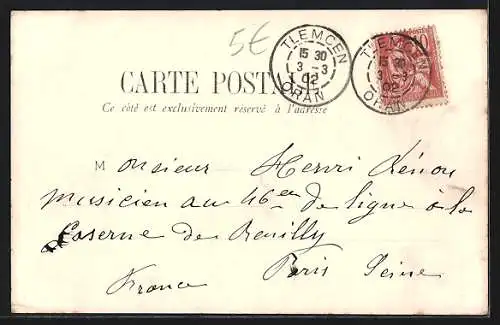 5€
TLEMCEN
15 30
3 - 3
02
ORAN
TLEMCEN
15 30
3 - 3
02
ORAN
10
CARTE POSTALE
Ce côté est exclusivement réservé à l'adresse
Monsieur Henri Lénon
musicien au 46em de ligne à la
Caserne de Reuilly
Paris Seine
France